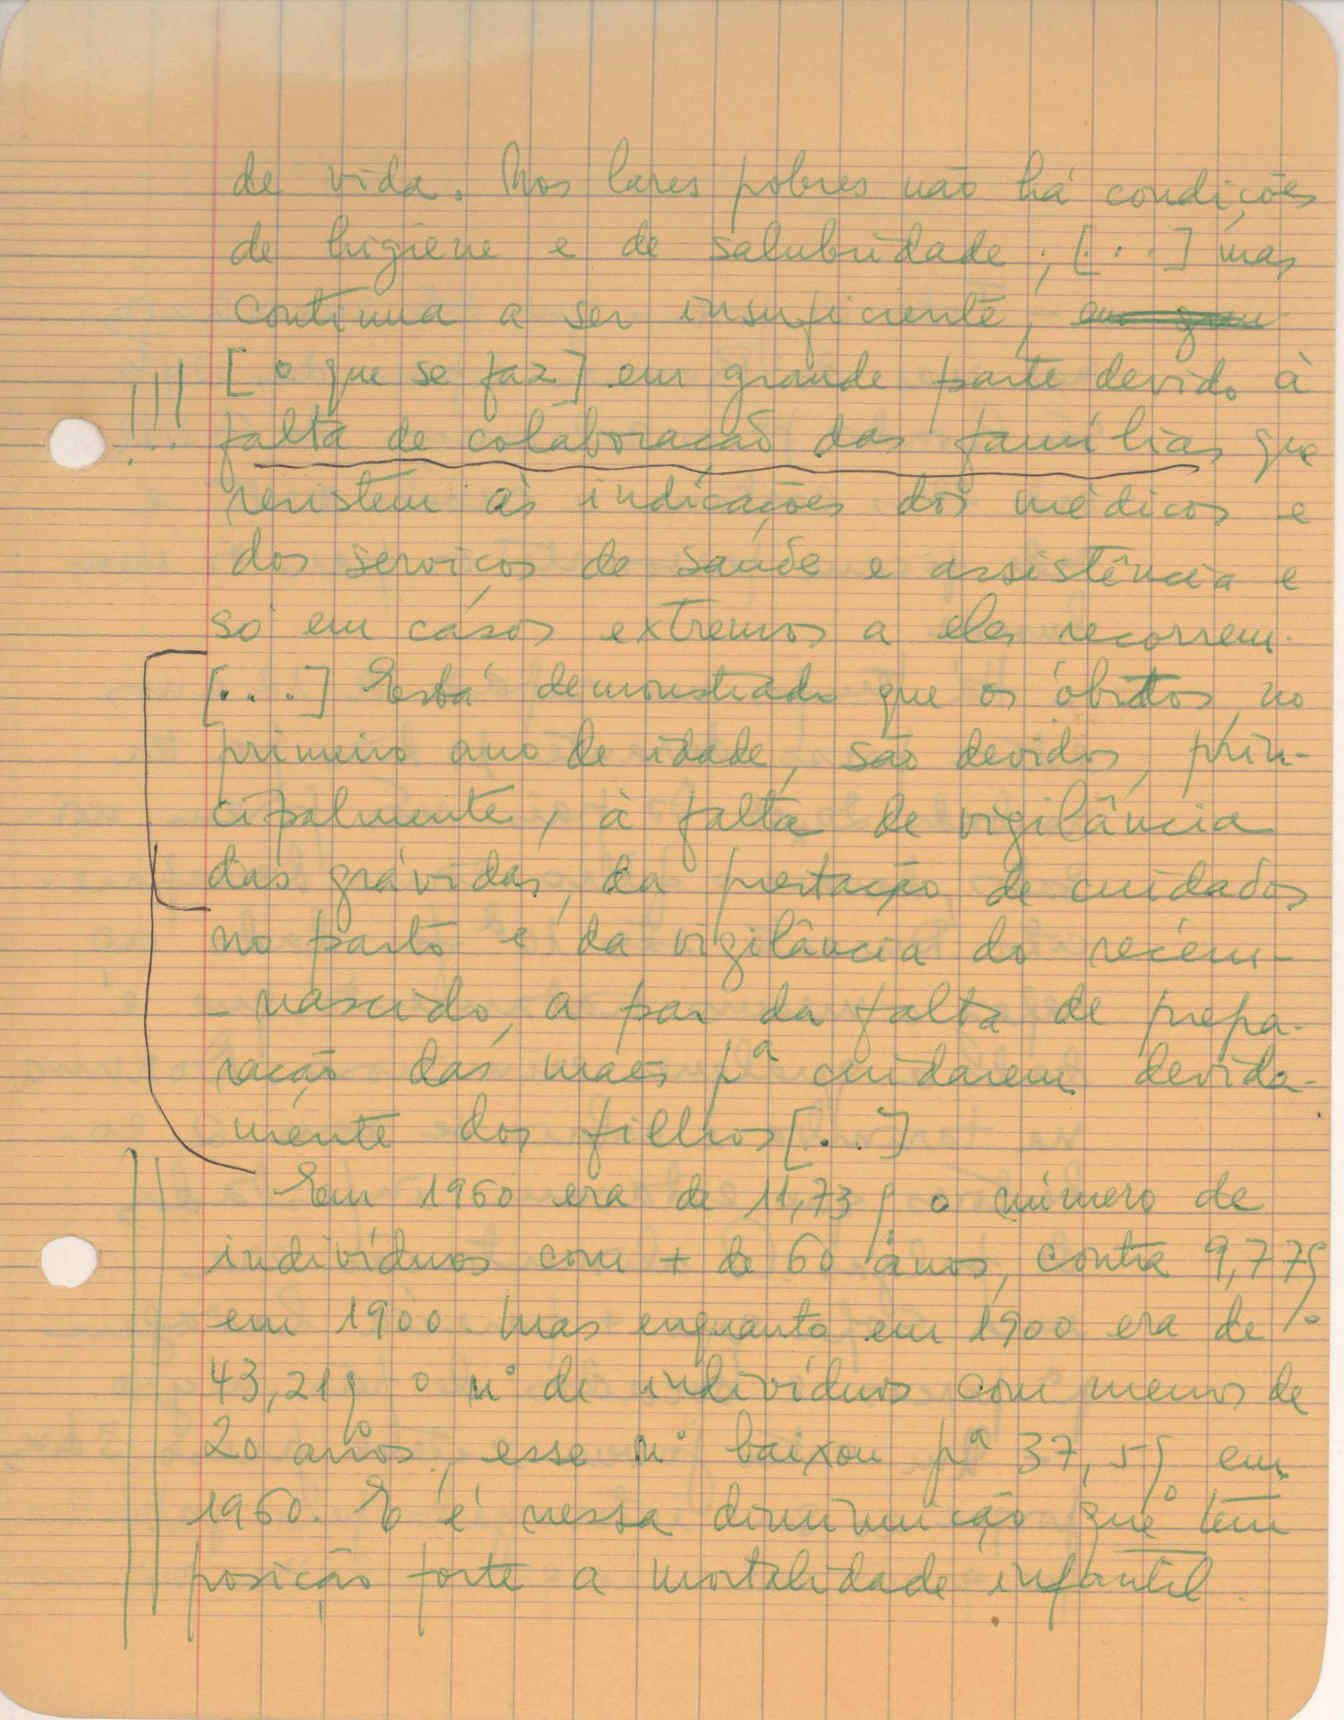 de vida. Nos lares pobres não há condições
de higiene e de salubridade; [...] mas
continua a ser insuficiente,
!!! [o que se faz] em grande parte devido à
falta de colaboração das famílias que
resistem às indicações dos médicos e
dos serviços de saúde e assistência e
só em casos extremos a eles recorrem.
[...] Está demonstrado que os óbitos, no
primeiro ano de idade, são devidos, prin-
cipalmente, à falta de vigilância
das grávidas, da prestação de cuidados
no parto e da vigilância do recém-
-nascido, a par da falta de prepa-
ração das mães pª cuidarem devida-
mente dos filhos [...]
Em 1960 era de 11,73% o número de
indivíduos com + de 60 anos, contra 9,77%
em 1900. Mas enquanto em 1900 era de
43,21% o nº de indivíduos com menos de
20 anos, esse nº baixou pª 37,5% em
1960. E é nessa diminuição que tem
posição forte a mortalidade infantil.